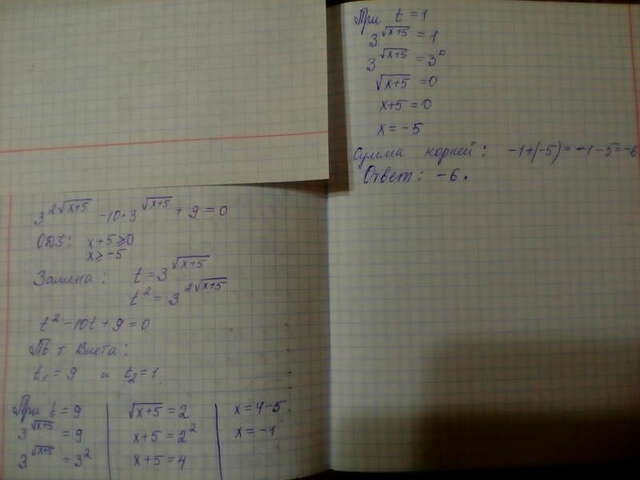 3^{2√(x+5)} - 10·3^{√(x+5)} + 9 = 0
ОДЗ: x+5 ≥ 0
x ≥ -5
Замена: t = 3^{√(x+5)}
t² = 3^{2√(x+5)}
t² - 10t + 9 = 0
По т Виета:
t₁ = 9 и t₂ = 1
При t = 9
3^{√(x+5)} = 9
3^{√(x+5)} = 3²
√(x+5) = 2
x+5 = 2²
x+5 = 4
x = 4-5
x = -1
При t = 1
3^{√(x+5)} = 1
3^{√(x+5)} = 3⁰
√(x+5) = 0
x+5 = 0
x = -5
Сумма корней: -1+(-5) = -1-5 = -6
Ответ: -6.